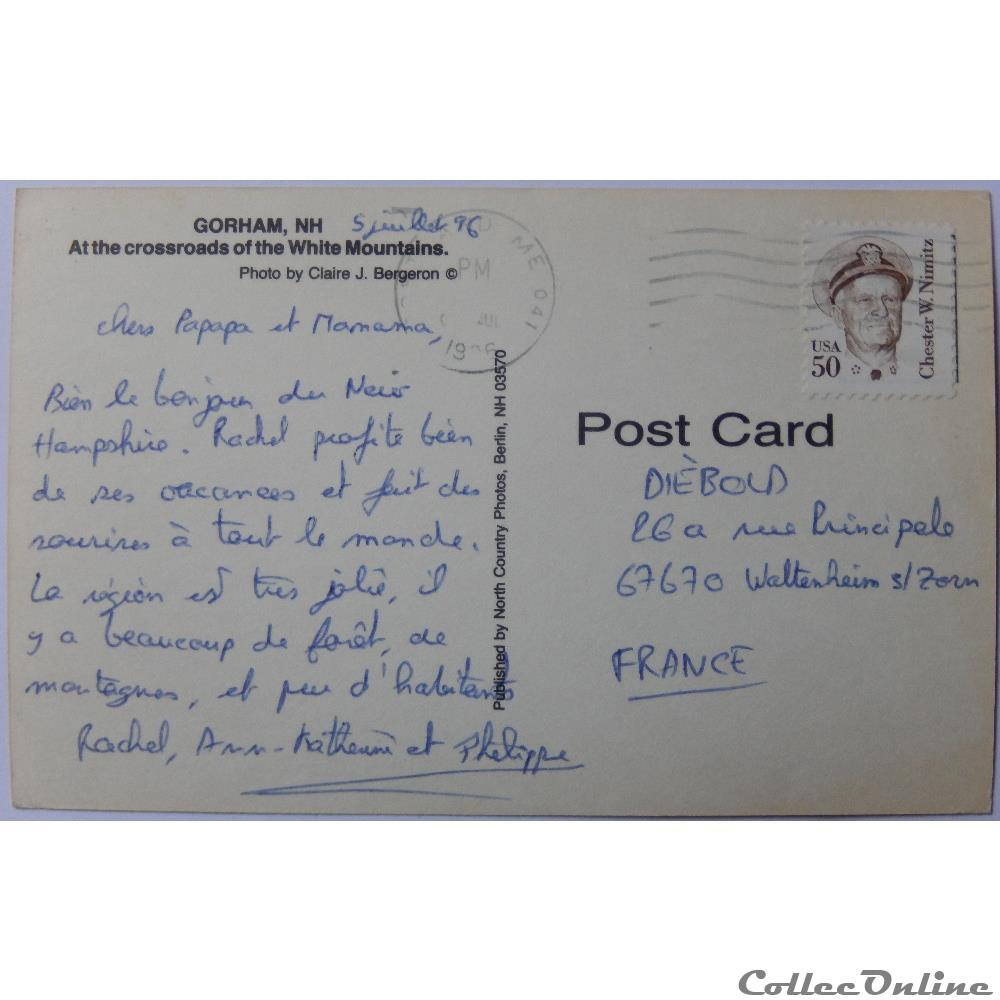 GORHAM, NH 5 juillet 96
At the crossroads of the White Mountains.
Photo by Claire J. Bergeron ©
chers Papapa et Mamama,
Bien le bonjour du New
Hampshire. Rachel profite bien
de ses vacances et fait des
sourires à tout le monde.
La région est très jolie, il
y a beaucoup de forêt, de
montagnes, et peu d'habitants
Rachel, Ann-Katherine et Philippe
Published by North Country Photos, Berlin, NH 03570
ME 041
PM
JUL
USA
50
Chester W. Nimitz
Post Card
DIÈBOLD
26a rue Principale
67670 Waltenheim s/Zorn
FRANCE
CollecOnline